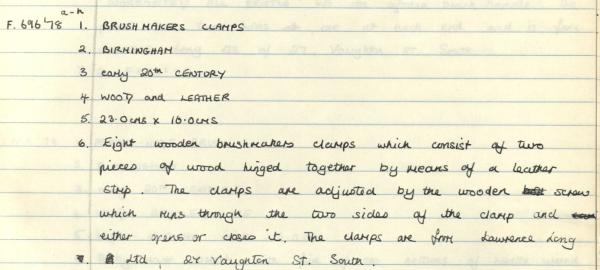 a-h
F.696'78 1. BRUSHMAKERS CLAMPS
2. BIRMINGHAM
3 early 20th CENTURY
4 WOOD and LEATHER
5. 23.0cms x 16.0cms
6. Eight wooden brushmakers clamps which consist of two
pieces of wood hinged together by means of a leather
strip. The clamps are adjusted by the wooden screw
which runs through the two sides of the clamp and
either opens or closes it. The clamps are from Lawrence Long
Ltd, 27 Vaughton St. South.